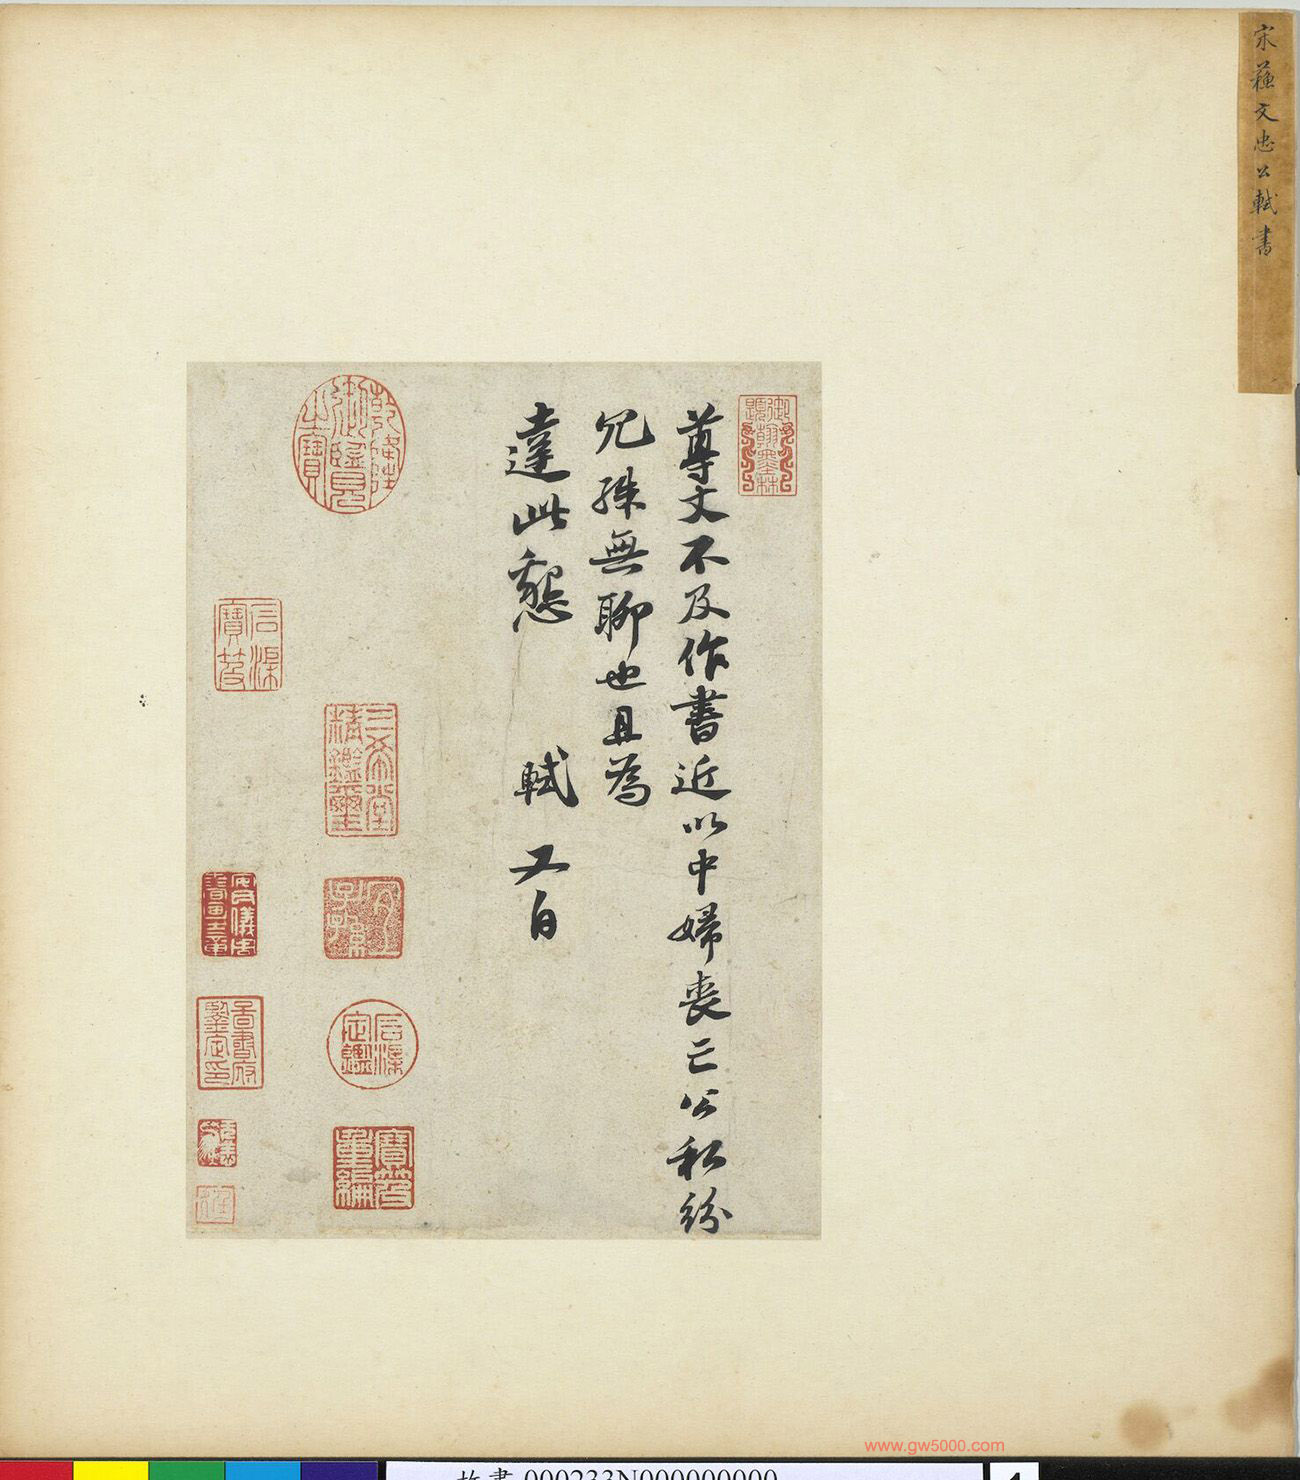 宋蘇文忠公軾書
御題翰墨林
尊丈不及作書近以中婦喪亡公私紛
冗殊無聊也且為
達此懇 軾又白
乾隆御覽之寶
三希堂精鑑璽
宜子孫
石渠定鑑
寶笈重編
石渠寶笈
安氏儀周書畫之章
www.gw5000.com
故書 000233N000000000